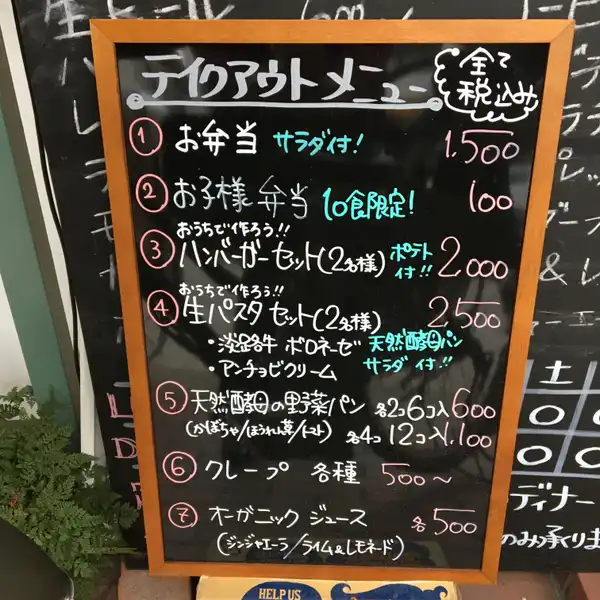 テイクアウトメニュー
全て
税込み
① お弁当 サラダ付! 1,500
② お子様弁当 10食限定! 100
おうちで作ろう!!
③ ハンバーガーセット(2名様) ポテト付!! 2000
おうちで作ろう!!
④ 生パスタセット(2名様) 2,500
・淡路牛 ボロネーゼ 天然酵母パン
・アンチョビクリーム サラダ付!!
⑤ 天然酵母の野菜パン 各2コ 6コ入 600
(かぼちゃ/ほうれん草/トマト) 各4コ 12コ入 1,100
⑥ クレープ 各種 500〜
⑦ オーガニック ジュース 各500
(ジンジャエーラ/ライム&レモネード)
生ビール
土
ディナー
のみ承りま
HELP US